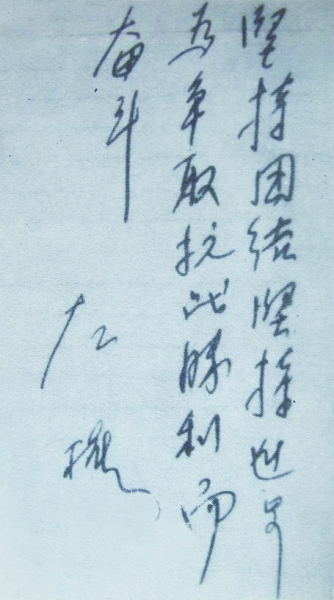 坚持团结坚持进步
为争取抗战勝利而
奋斗
左權